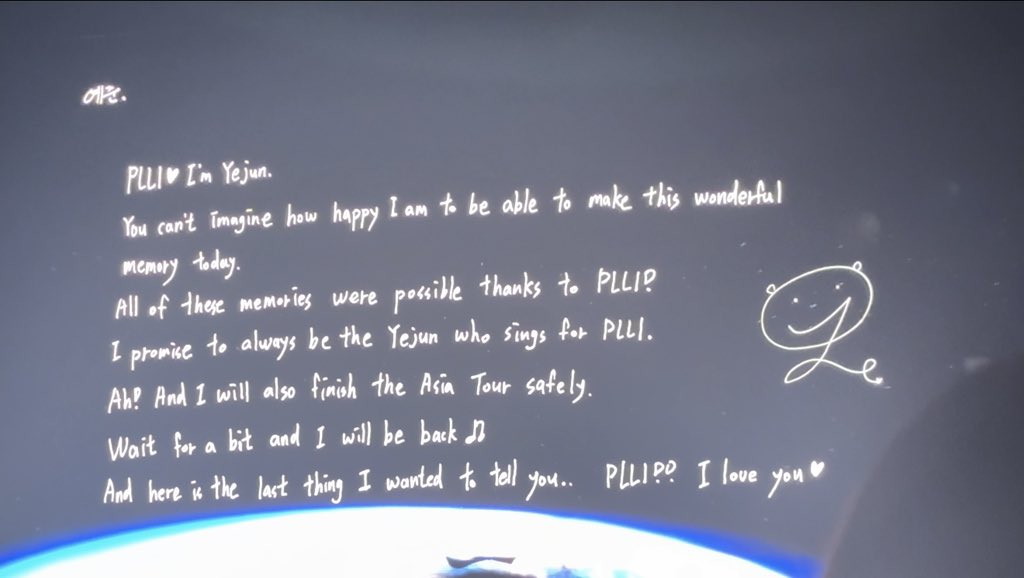 예준.
PLLI♥ I'm Yejun.
You can't imagine how happy I am to be able to make this wonderful
memory today.
All of these memories were possible thanks to PLLI!
I promise to always be the Yejun who sings for PLLI.
Ah! And I will also finish the Asia Tour safely.
Wait for a bit and I will be back♫
And here is the last thing I wanted to tell you.. PLLI!! I love you♥